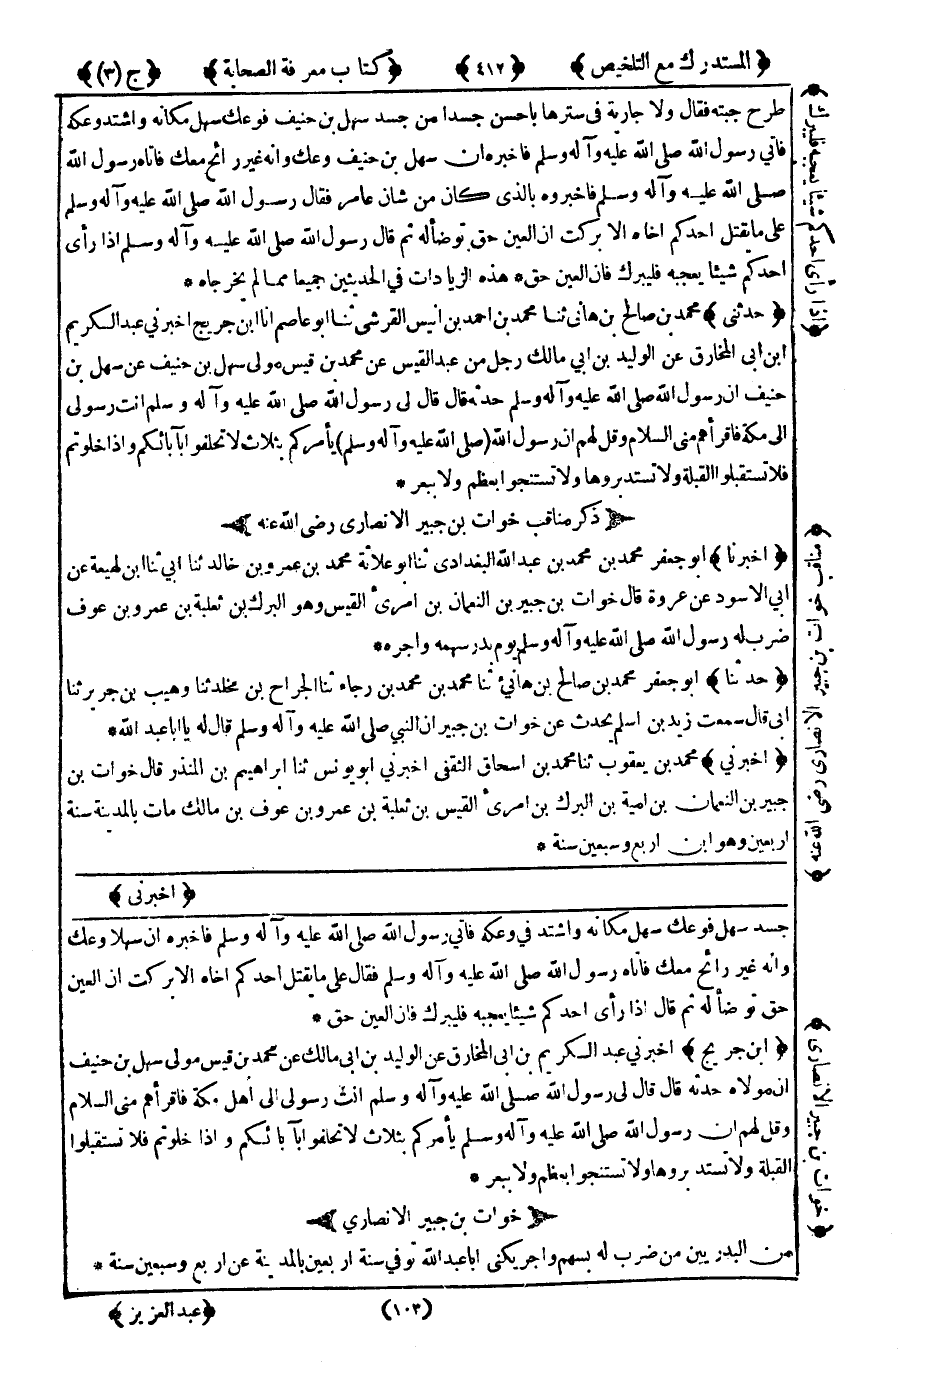 ﴿المستدرك مع التلخيص﴾ ﴿٤١٢﴾ ﴿كتاب معرفة الصحابة﴾ ﴿ج (٣)﴾
طرح جبته فقال ولا جارية فى سترها باحسن جسدا من جسد سهل بن حنيف فوعك سهل مكانه واشتد وعكه
فاتي رسول الله صلى الله عليه وآله وسلم فاخبره ان سهل بن حنيف وعك وانه غير رائح معك فاتاه رسول الله
صلى الله عليه وآله وسلم فاخبروه بالذى كان من شان عامر فقال رسول الله صلى الله عليه وآله وسلم
على ما يقتل احدكم اخاه الا بركت ان العين حق توضأ له ثم قال رسول الله صلى الله عليه وآله وسلم اذا رأى
احدكم شيئا يعجبه فليبرك فان العين حق * هذه الزيادات في الحديثين جميعا مما لم يخرجاه *
﴿حدثنى﴾ محمد بن صالح بن هانى ثنا محمد بن احمد بن انيس القرشى ثنا ابو عاصم انا ابن جريج اخبرني عبد الكريم
ابن ابى المخارق عن الوليد بن ابي مالك رجل من عبد القيس عن محمد بن قيس مولى سهل بن حنيف عن سهل بن
حنيف ان رسول الله صلى الله عليه وآله وسلم حدثه قال قال لى رسول الله صلى الله عليه وآله وسلم انت رسولى
الى مكة فاقرأهم منى السلام وقل لهم ان رسول الله (صلى الله عليه وآله وسلم) يأمركم بثلاث لا تحلفوا بآبائكم واذا خلوتم
فلا تستقبلوا القبلة ولا تستدبروها ولا تستنجوا بعظم ولا ببعر *
ذكر مناقب خوات بن جبير الانصارى رضى الله عنه
﴿اخبرنا﴾ ابو جعفر محمد بن محمد بن عبد الله البغدادى ثنا ابو علاثة محمد بن عمرو بن خالد ثنا ابي ثنا ابن لهيعة عن
ابي الاسود عن عروة قال خوات بن جبير بن النعمان بن امرئ القيس وهو البرك بن ثعلبة بن عمرو بن عوف
ضرب له رسول الله صلى الله عليه وآله وسلم يوم بدر سهمه واجره *
﴿حدثنا﴾ ابو جعفر محمد بن صالح بن هانئ ثنا محمد بن محمد بن رجاء ثنا الجراح بن مخلد ثنا وهيب بن جرير ثنا
ابى قال سمعت زيد بن اسلم يحدث عن خوات بن جبير ان النبي صلى الله عليه وآله وسلم قال له يا ابا عبد الله *
﴿اخبرني﴾ محمد بن يعقوب ثنا محمد بن اسحاق الثقفى اخبرني ابو يونس ثنا ابراهيم بن المنذر قال خوات بن
جبير بن النعمان بن امية بن البرك بن امرئ القيس بن ثعلبة بن عمرو بن عوف بن مالك مات بالمدينة سنة
اربعين وهو ابن اربع وسبعين سنة *
﴿اخبرنى﴾
جسد سهل فوعك سهل مكانه واشتد في وعكه فاتي رسول الله صلى الله عليه وآله وسلم فاخبره ان سهلا وعك
وانه غير رائح معك فاتاه رسول الله صلى الله عليه وآله وسلم فقال على ما يقتل احدكم اخاه الا بركت ان العين
حق توضأ له ثم قال اذا رأى احدكم شيئا يعجبه فليبرك فان العين حق *
﴿ابن جريج﴾ اخبرني عبد الكريم بن ابى المخارق عن الوليد بن ابى مالك عن محمد بن قيس مولى سهل بن حنيف
ان مولاه حدثه قال قال لى رسول الله صلى الله عليه وآله وسلم انت رسولى الى أهل مكة فاقرأهم منى السلام
وقل لهم ان رسول الله صلى الله عليه وآله وسلم يأمركم بثلاث لا تحلفوا بآبائكم واذا خلوتم فلا تستقبلوا
القبلة ولا تستدبروها ولا تستنجوا بعظم ولا ببعر *
خوات بن جبير الانصاري
من البدريين من ضرب له بسهم واجر يكنى ابا عبد الله توفي سنة اربعين بالمدينة عن اربع وسبعين سنة *
(١٠٣) ﴿عبد العزيز﴾
﴿اذا رأى احدكم شيئا يعجبه فليبرك﴾
﴿مناقب خوات بن جبير الانصارى رضى الله عنه﴾
﴿خوات بن جبير الانصارى﴾